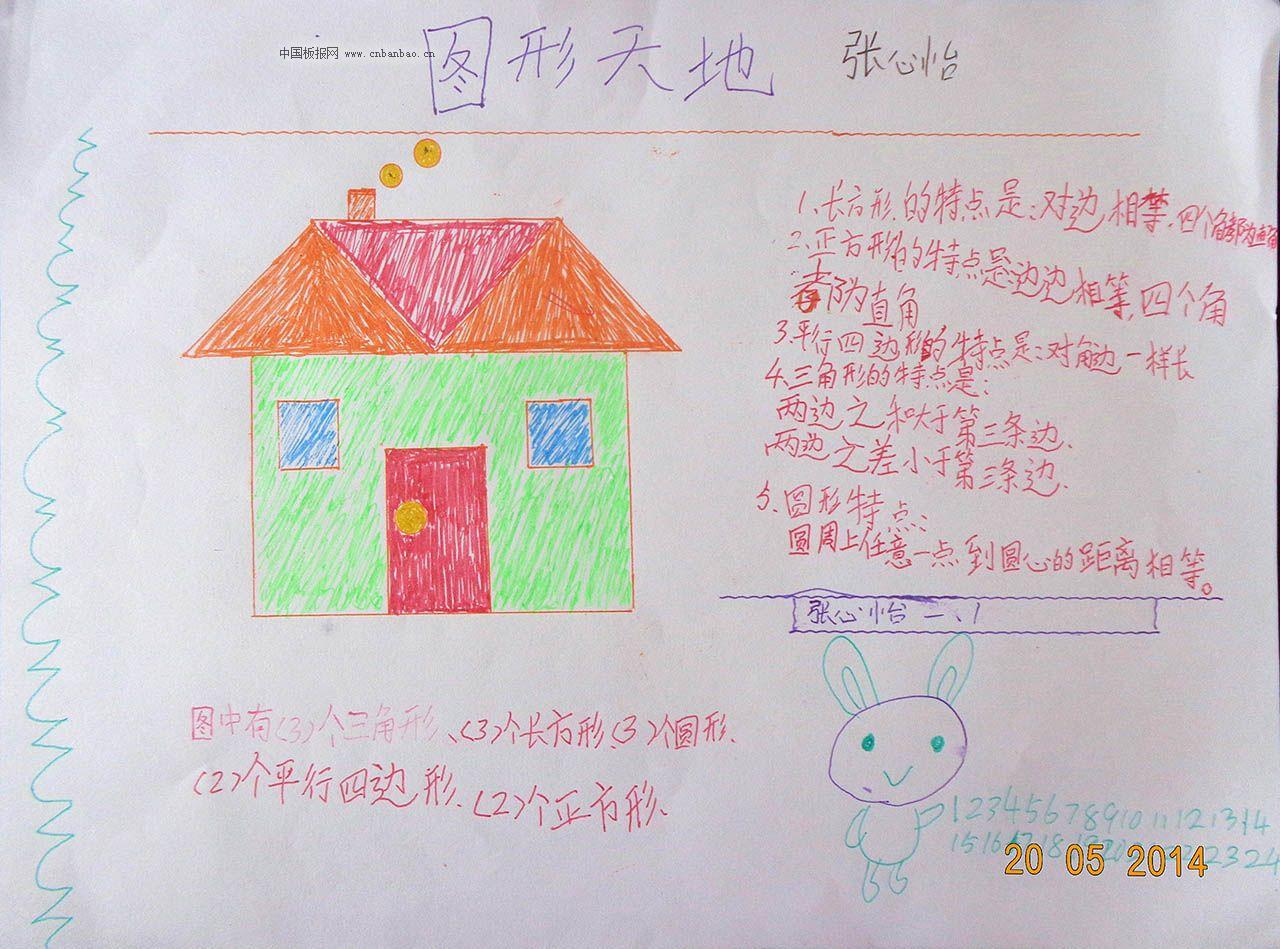 中国板报网 www.cnbanbao.cn
图形天地 张心怡
1、长方形的特点是:对边相等,四个角都为直角
2、正方形的特点是:边边相等,四个角
都为直角
3、平行四边形的特点是:对角边一样长
4、三角形的特点是:
两边之和大于第三条边、
两边之差小于第三条边、
5、圆形特点:
圆周上任意一点到圆心的距离相等。
张心怡 二、1
图中有(3)个三角形、(3)个长方形、(3)个圆形、
(2)个平行四边形、(2)个正方形、
1 2 3 4 5 6 7 8 9 10 11 12 13 14
15 16 17 18 23 24
20 05 2014